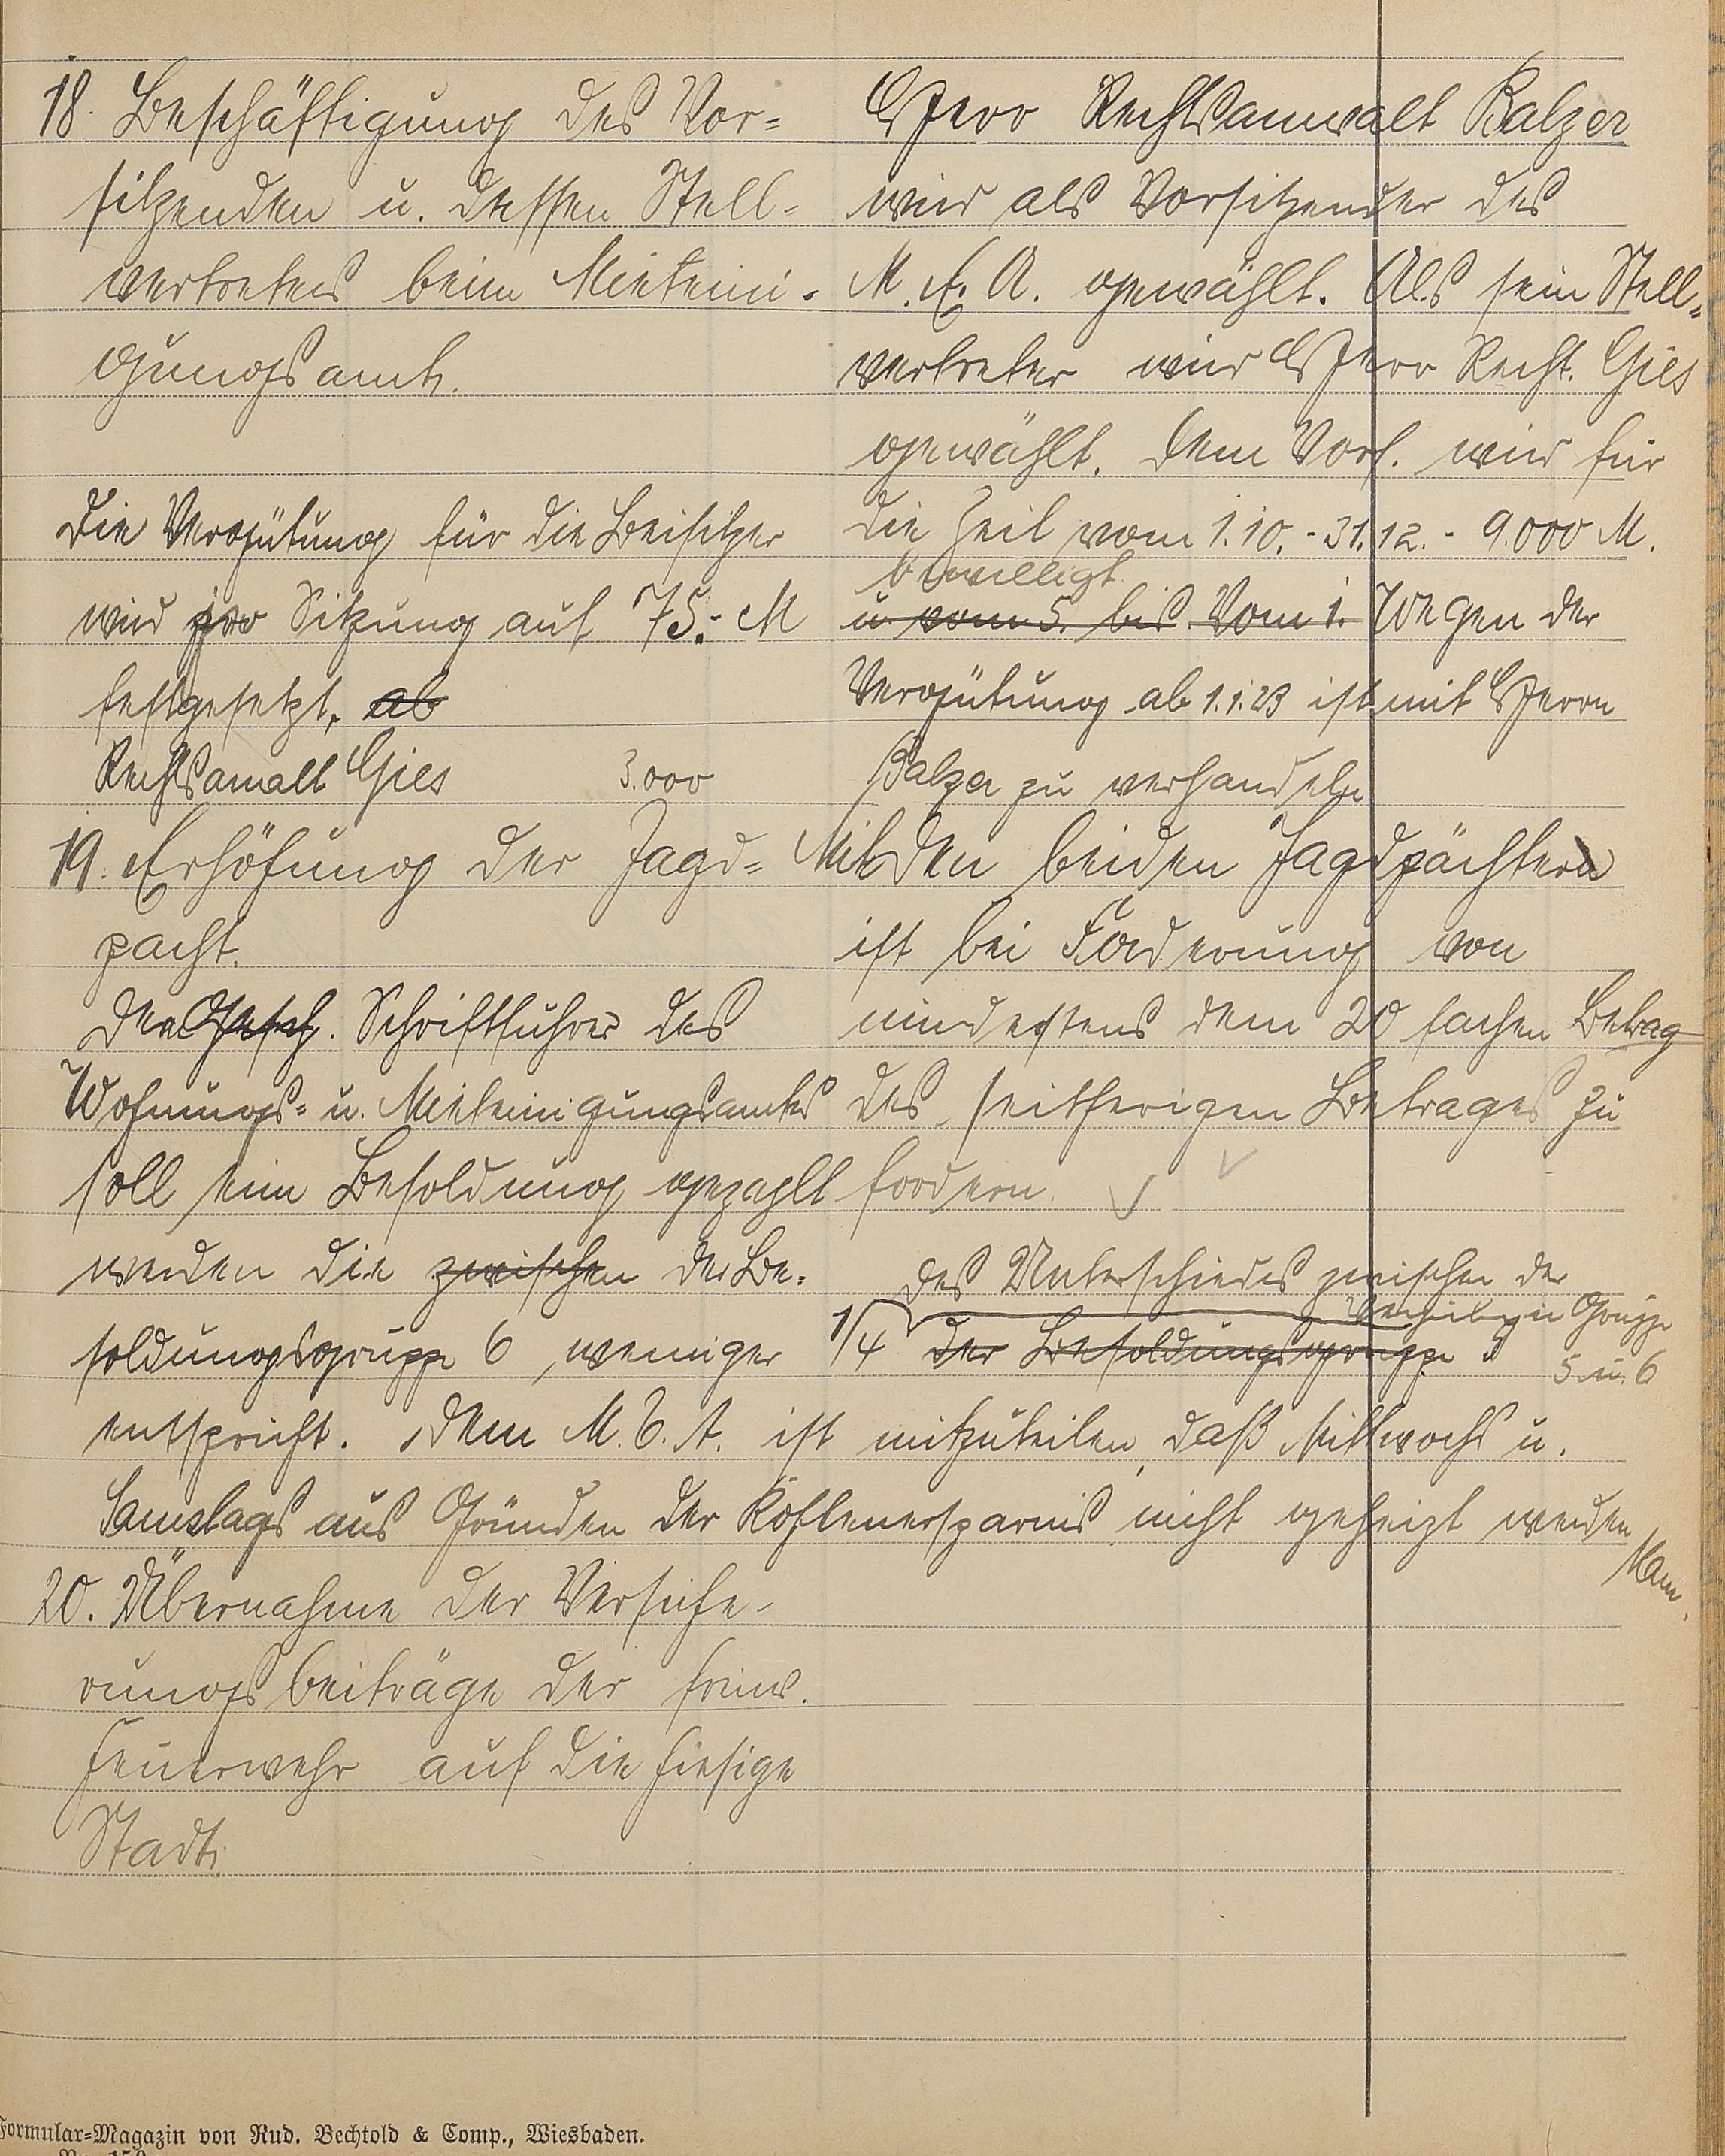 18. Beschäftigung des Vor=
sitzenden u. dessen Stell-
vertreters beim Mieteini-
gungsamt.
Die Vergütung für die Beisitzer
wird pro Sitzung auf 75.- M
festgesetzt. ab
Rechtsanwalt Gies 3.000
Herr Rechtsanwalt Balzer
wird als Vorsitzender des
M.E.A. gewählt. Als sein Stell=
vertreter wird Herr Recht. Gies
gewählt. Dem Vors. wird für
die Zeit vom 1.10.-31.12.- 9.000 M.
bewilligt
u. vom 5. bis Vom 1. Wegen der
Vergütung ab 1.1.23 ist mit Herrn
Balzer zu verhandeln
19. Erhöhung der Jagd=
pacht.
Mit den beiden Jagdpächtern
ist bei Forderung von
mindestens dem 20 fachen Betrag
des seitherigen Betrages zu
fordern.
Der Schriftführer des
Wohnungs= u. Mieteinigungsamtes
soll eine Besoldung gezahlt
werden die zwischen der Be=
soldungsgruppe 6, weniger 1/4 der Besoldungsgruppe 5
des Unterschiedes zwischen der
in Gruppe
5 u. 6
entspricht. Dem M.E.A. ist mitzuteilen, daß Mittwochs u.
Samstags aus Gründen der Kohlenersparnis nicht geheizt werden
kann.
20. Übernahme der Versiche-
rungsbeiträge der freiw.
Feuerwehr auf die hiesige
Stadt.
Formular=Magazin von Rud. Bechtold & Comp., Wiesbaden.